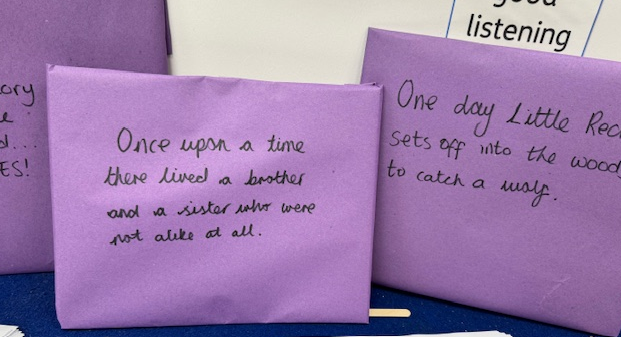 good
listening
ory
ES!
Once upon a time
there lived a brother
and a sister who were
not alike at all.
One day Little Rec
sets off into the woods
to catch a wolf.